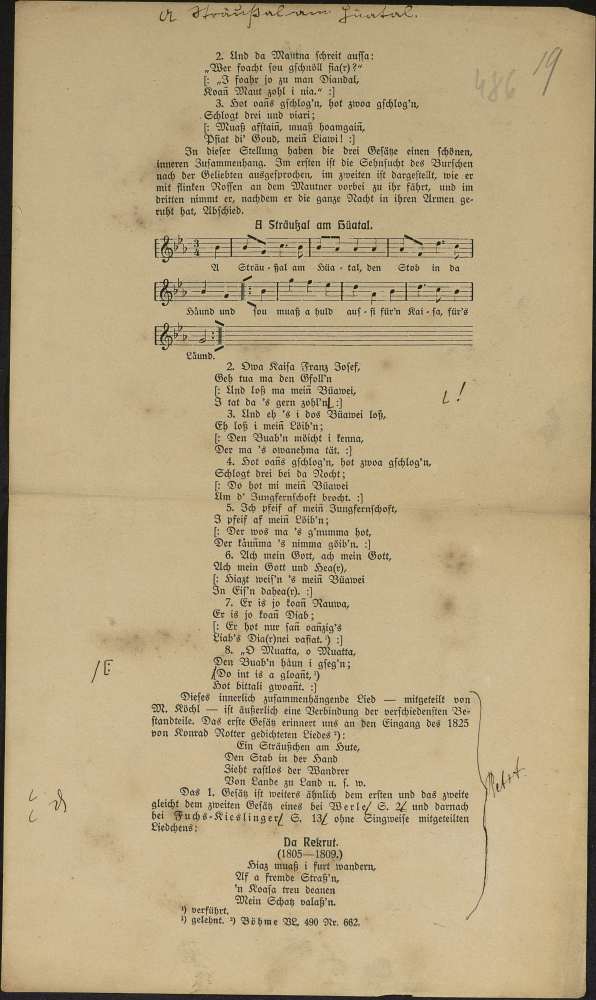 A Sträußal am Hüatal.
19
486
2. Und da Mautna schreit aussa:
„Wer foacht sou gschnöll fia(r)?“
[: „J foahr jo zu man Diandal,
Koan̄ Maut zohl i nia.“ :]
3. Hot oan̄s gschlog'n, hot zwoa gschlog'n,
Schlogt drei und viari;
[: Muaß afstain̄, muaß hoamgain̄,
Pfiat di' Goud, mein̄ Liawi! :]
In dieser Stellung haben die drei Gesätze einen schönen,
inneren Zusammenhang. Im ersten ist die Sehnsucht des Burschen
nach der Geliebten ausgesprochen, im zweiten ist dargestellt, wie er
mit flinken Rossen an dem Mautner vorbei zu ihr fährt, und im
dritten nimmt er, nachdem er die ganze Nacht in ihren Armen ge-
ruht hat, Abschied.
A Sträußal am Hüatal.
3
4
A Sträu - ßal am Hüa - tal, den Stob in da
Häund und sou muaß a huld aus - si für'n Kai - sa, für's
Läund.
2. Owa Kaisa Franz Josef,
Geh tua ma den Gfoll'n
[: Und loß ma mein̄ Büawei,
J tat da 's gern zohl'n! :]
L!
3. Und eh 's i dos Büawei loß,
Eh loß i mein̄ Löib'n;
[: Den Buab'n möicht i kenna,
Der ma 's owanehma tät. :]
4. Hot oan̄s gschlog'n, hot zwoa gschlog'n,
Schlogt drei bei da Nocht;
[: Do hot mi mein̄ Büawei
Um d' Jungfernschoft brocht. :]
5. Jch pfeif af mein̄ Jungfernschoft,
J pfeif af mein̄ Löib'n;
[: Der wos ma 's g'numma hot,
Der kāun̄ma 's nimma göib'n. :]
6. Ach mein Gott, ach mein Gott,
Ach mein Gott und Hea(r),
[: Hiazt weis'n 's mein̄ Büawei
In Eis'n dahea(r). :]
7. Er is jo koan̄ Rauwa,
Er is jo koan̄ Diab;
[: Er hot nur san̄ oan̄zig's
Liab's Dia(r)nei vafiat. ¹) :]
8. „O Muatta, o Muatta,
Den Buab'n häun i gseg'n;
/[:
Do int is a gloan̄t, ²)
Hot bittali gwoan̄t. :]
Dieses innerlich zusammenhängende Lied — mitgeteilt von
M. Köchl — ist äußerlich eine Verbindung der verschiedensten Be-
standteile. Das erste Gesätz erinnert uns an den Eingang des 1825
von Konrad Rotter gedichteten Liedes ³):
Ein Sträußchen am Hute,
Den Stab in der Hand
Zieht rastlos der Wandrer
Von Lande zu Land u. s. w.
Das 1. Gesätz ist weiters ähnlich dem ersten und das zweite
gleicht dem zweiten Gesätz eines bei Werle, S. 2, und darnach
bei Fuchs-Kieslinger, S. 13, ohne Singweise mitgeteilten
Liedchens:
Da Rekrut.
(1805—1809.)
Hiaz muaß i furt wandern,
Af a fremde Straß'n,
'n Koasa treu deanen
Mein Schatz valaß'n.
¹) verführt.
²) gelehnt. ³) Böhme VL, 490 Nr. 662.